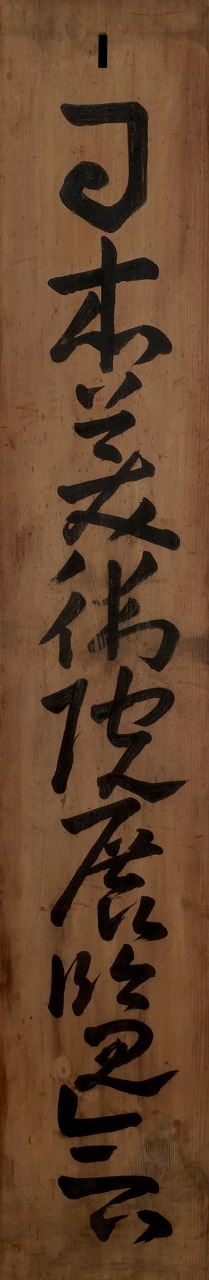 日本美術院展覧会